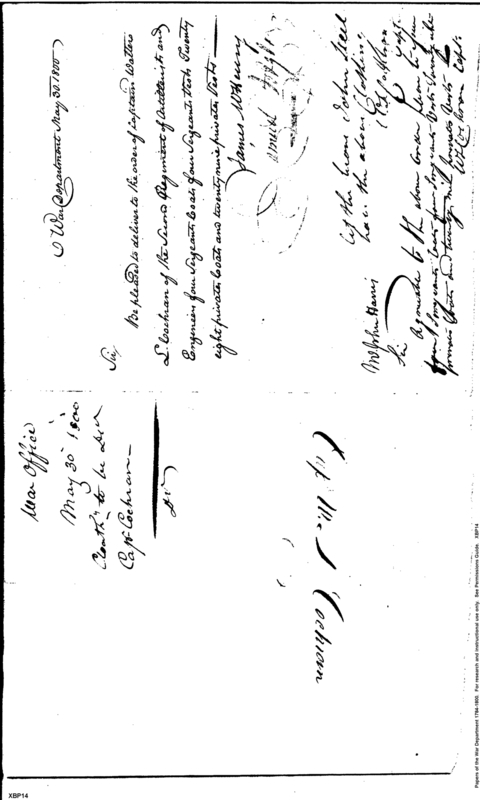 War Department May 30. 1800
Sir,
Be pleased to deliver to the order of Captain Walter
L. Cochran of the Second Regiment of Artillerists and
Engineers four Sergeants Coats four Sergeants Vests Twenty
eight private Coats and twenty nine private Vests
James McHenry
let the bearer John Steel
have the above Clothing
Mr John Harris
Sir
Agreeable to the above order please to
four Sergeants Coats four Sergeants Vests Twenty eight
private Coats and twenty nine private Vests
W L Cochran Capt.
War Office
May 30th 1800
Cloathg to be Dd
Capt Cochran
Capt
Cochran
Papers of the War Department 1784-1800. For research and instructional use only. See Permissions Guide. XBP14
XBP14